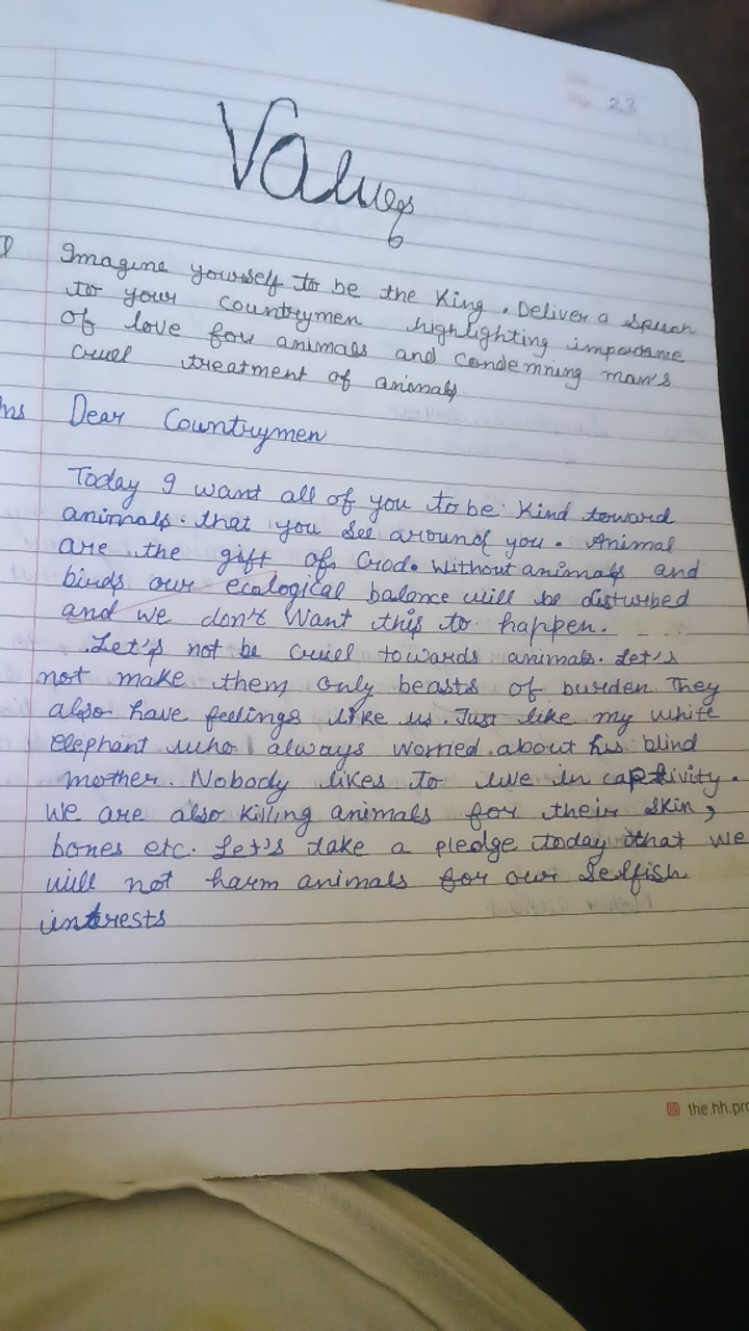 23
Values
Imagine yourself to be the King. Deliver a speech
to your countrymen highlighting importance
of love for animals and condemning man's
cruel treatment of animals.
Ans Dear Countrymen
Today I want all of you to be kind toward
animals. that you see around you. Animal
are the gift of God. Without animals and
birds our ecological balance will be disturbed
and we don't want this to happen.
Let's not be cruel towards animals. Let's
not make them only beasts of burden They
also have feelings like us. Just like my white
elephant who always worried about his blind
mother. Nobody likes to live in captivity.
We are also killing animals for their skin,
bones etc. Let's take a pledge today that we
will not harm animals for our selfish
interests
the.hh.pro